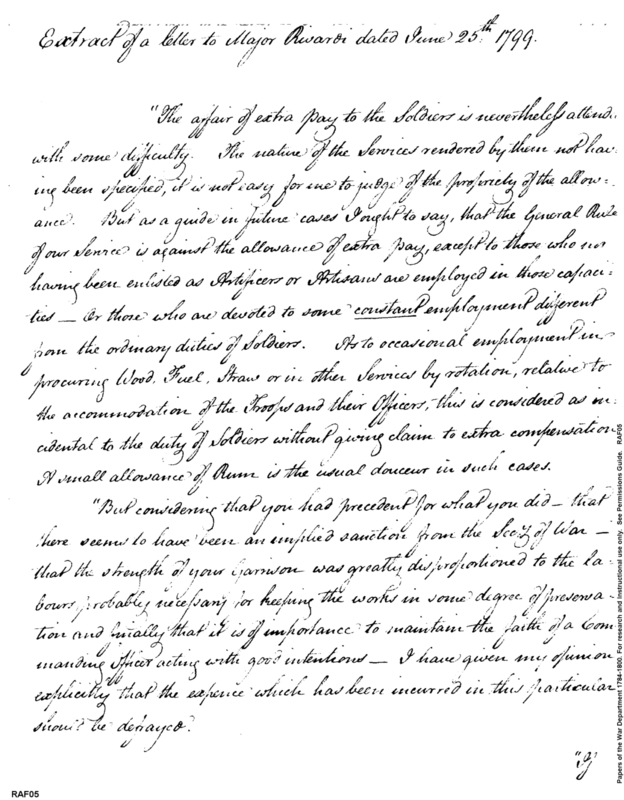 Extract of a letter to Major Rivardi dated June 25th 1799.
"The affair of extra pay to the Soldiers is nevertheless attend..
with some difficulty. The nature of the Services rendered by them not hav-
ing been specified, it is not easy for me to judge of the propriety of the allow-
ance. But as a guide in future cases I ought to say, that the General Rule
of our Service is against the allowance of extra pay, except to those who not
having been enlisted as Artificers or Artisans are employed in those capaci-
ties — Or those who are devoted to some constant employment different
from the ordinary duties of Soldiers. As to occasional employment in
procuring Wood, Fuel, Straw or in other Services by rotation, relative to
the accommodation of the Troops and their Officers, this is considered as in-
cidental to the duty of Soldiers without giving claim to extra compensation
A small allowance of Rum is the usual douceur in such cases.
"But considering that you had precedent for what you did — that
there seems to have been an implied sanction from the Secy of War —
that the strength of your Garrison was greatly disproportioned to the la-
bours probably necessary for keeping the works in some degree of preserva-
tion and finally that it is of importance to maintain the faith of a Com
manding Officer acting with good intentions — I have given my opinion
explicitly that the expence which has been incurred in this particular
should be defrayed."
RAF05
Papers of the War Department 1784-1800. For research and instructional use only. See Permissions Guide. RAF05